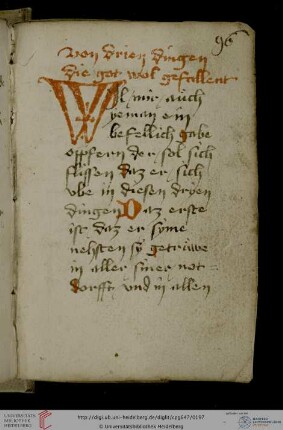 96
Von drien dingen
die got wol gefallent
Wil mir auch
yeman ein
befellich gabe
opffern der sol sich
flissen daz er sich
vbe in diesen dryen
dingen Daz erste
ist daz er syme
nehsten sy getruwe
in aller siner not
dorfft vnd in allen
http://digi.ub.uni-heidelberg.de/diglit/cpg647/0197
© Universitätsbibliothek Heidelberg